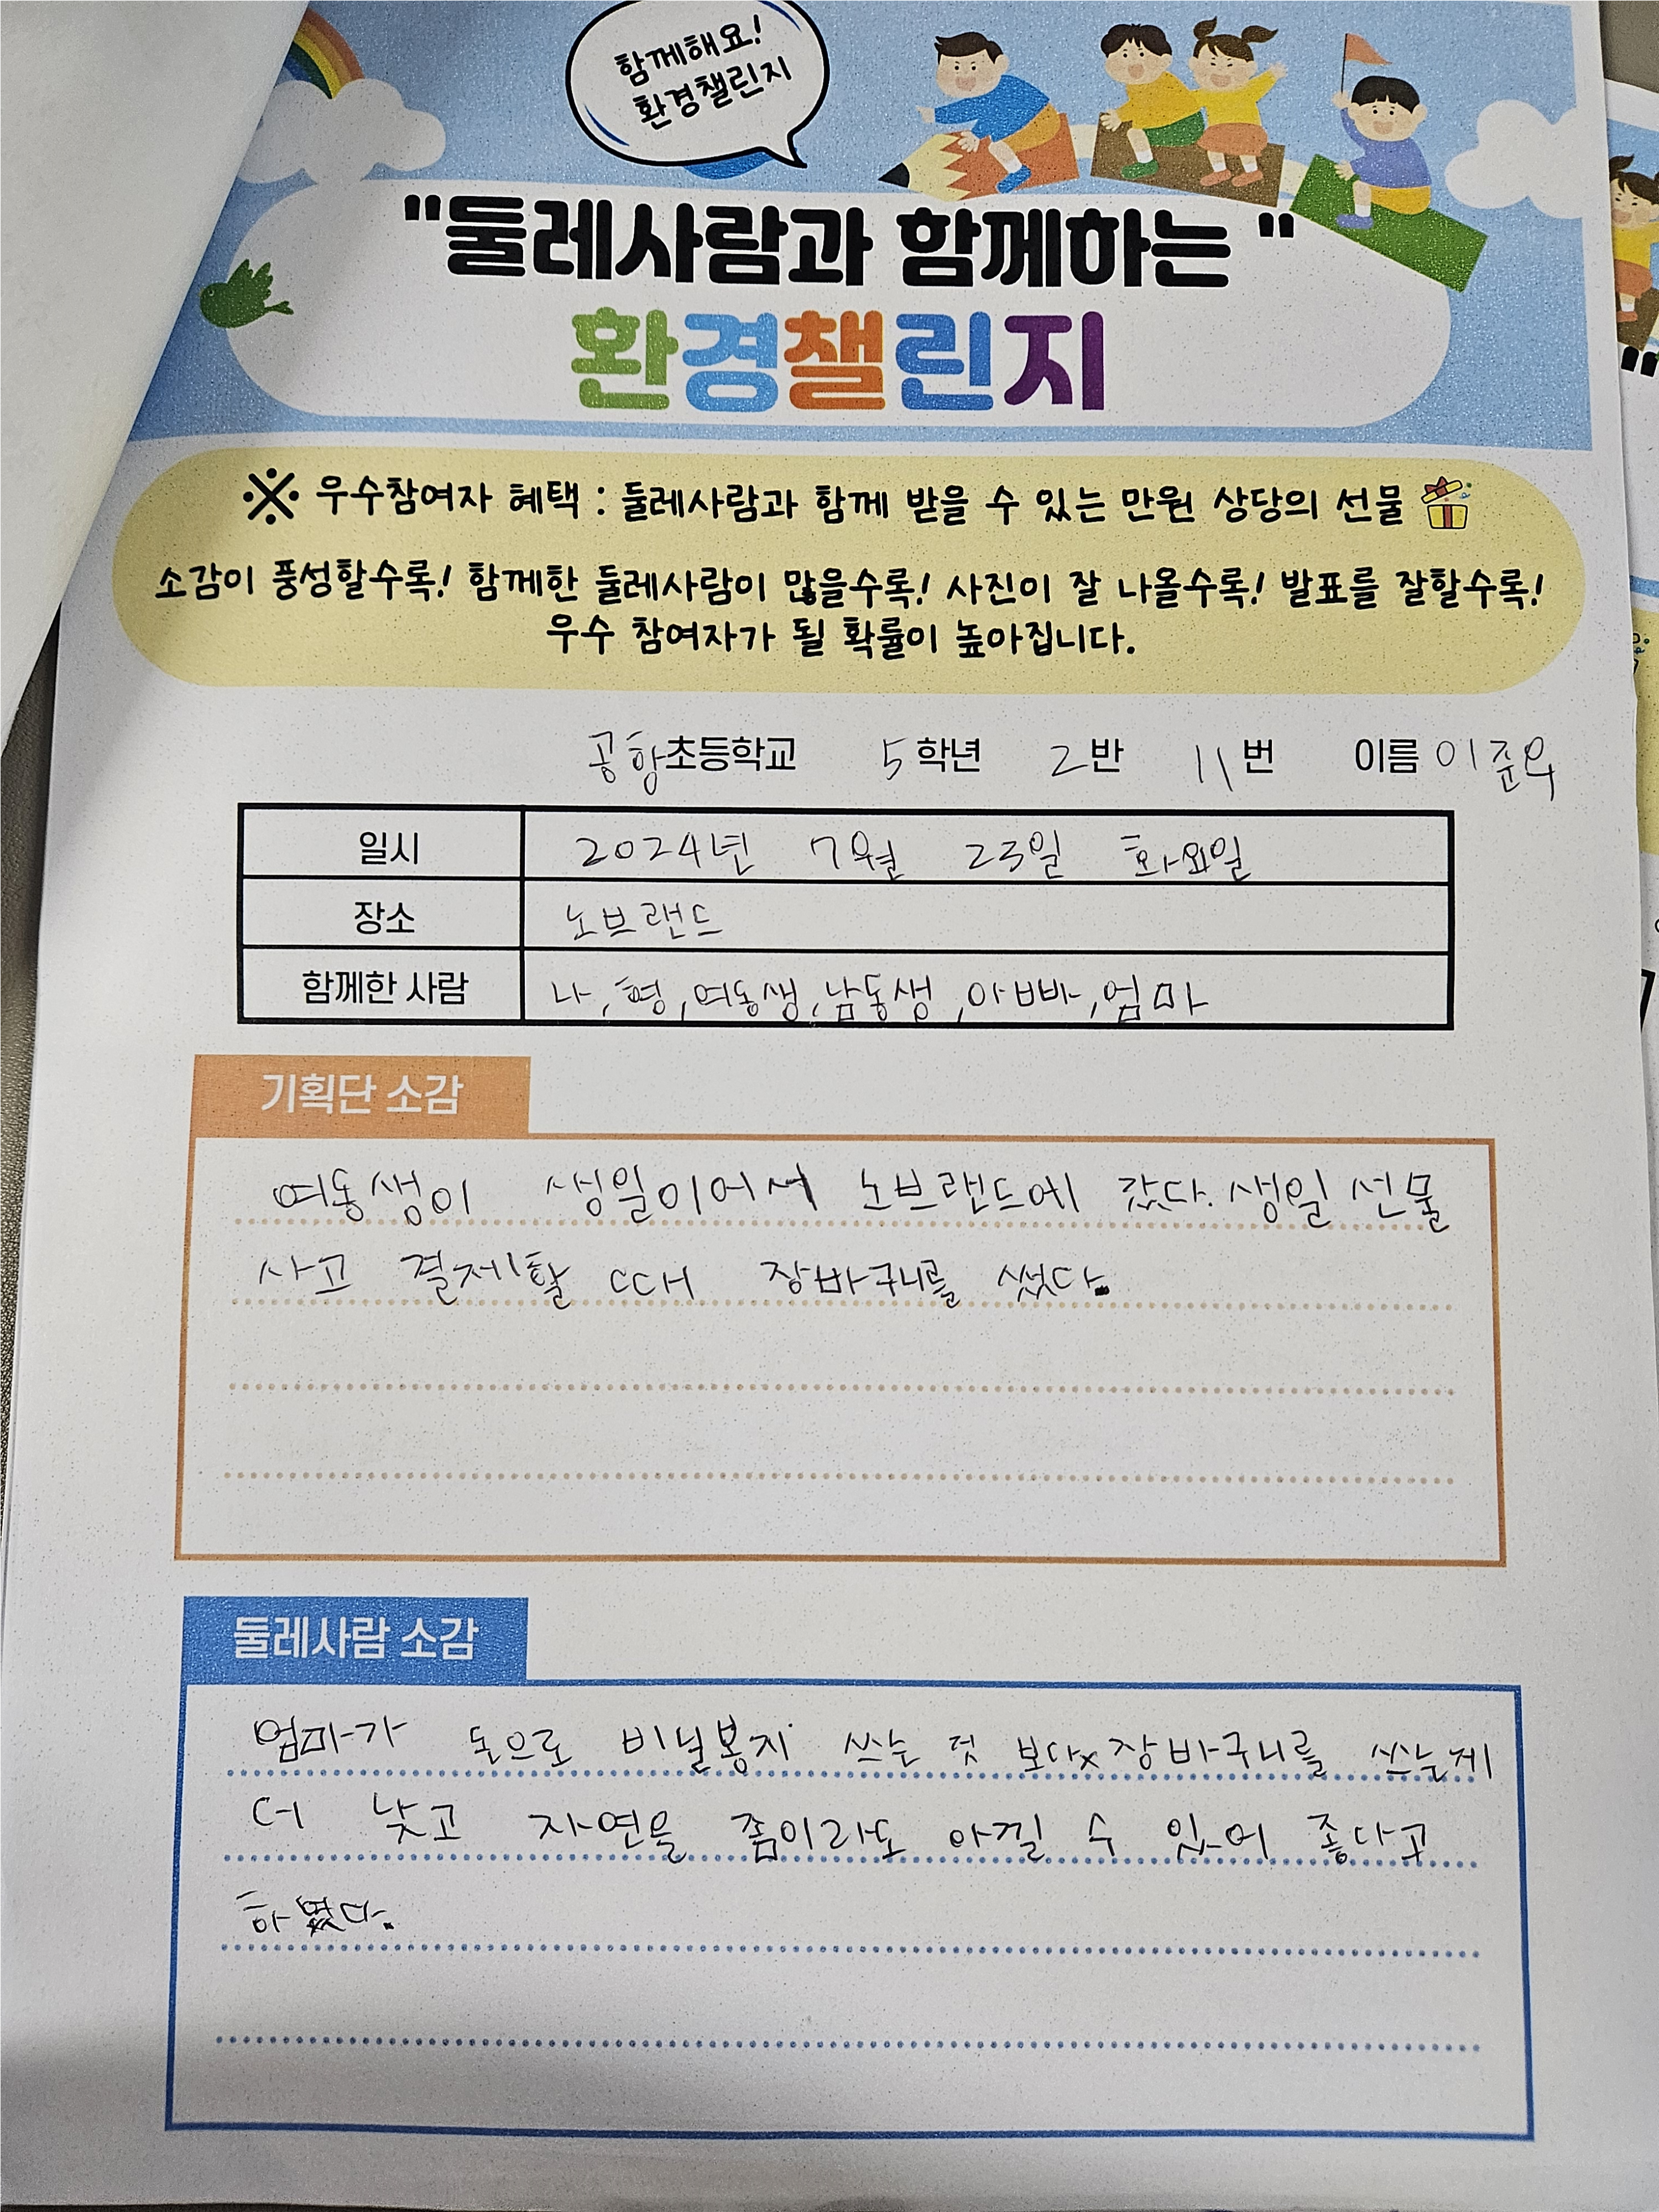 함께해요!
환경챌린지
"둘레사람과 함께하는 "
환경챌린지
※ 우수참여자 혜택 : 둘레사람과 함께 받을 수 있는 만원 상당의 선물
소감이 풍성할수록! 함께한 둘레사람이 많을수록! 사진이 잘 나올수록! 발표를 잘할수록!
우수 참여자가 될 확률이 높아집니다.
공항초등학교 5학년 2반 11번 이름 이준우
일시 2024년 7월 23일 화요일
장소 노브랜드
함께한 사람 나, 형, 여동생, 남동생, 아빠, 엄마
기획단 소감
여동생이 생일이어서 노브랜드에 갔다. 생일 선물
사고 결제할 때 장바구니를 썼다.
둘레사람 소감
엄마가 돈으로 비닐봉지 쓰는 것 보다 장바구니를 쓰는게
더 낮고 자연을 좀이라도 아낄 수 있어 좋다고
하였다.